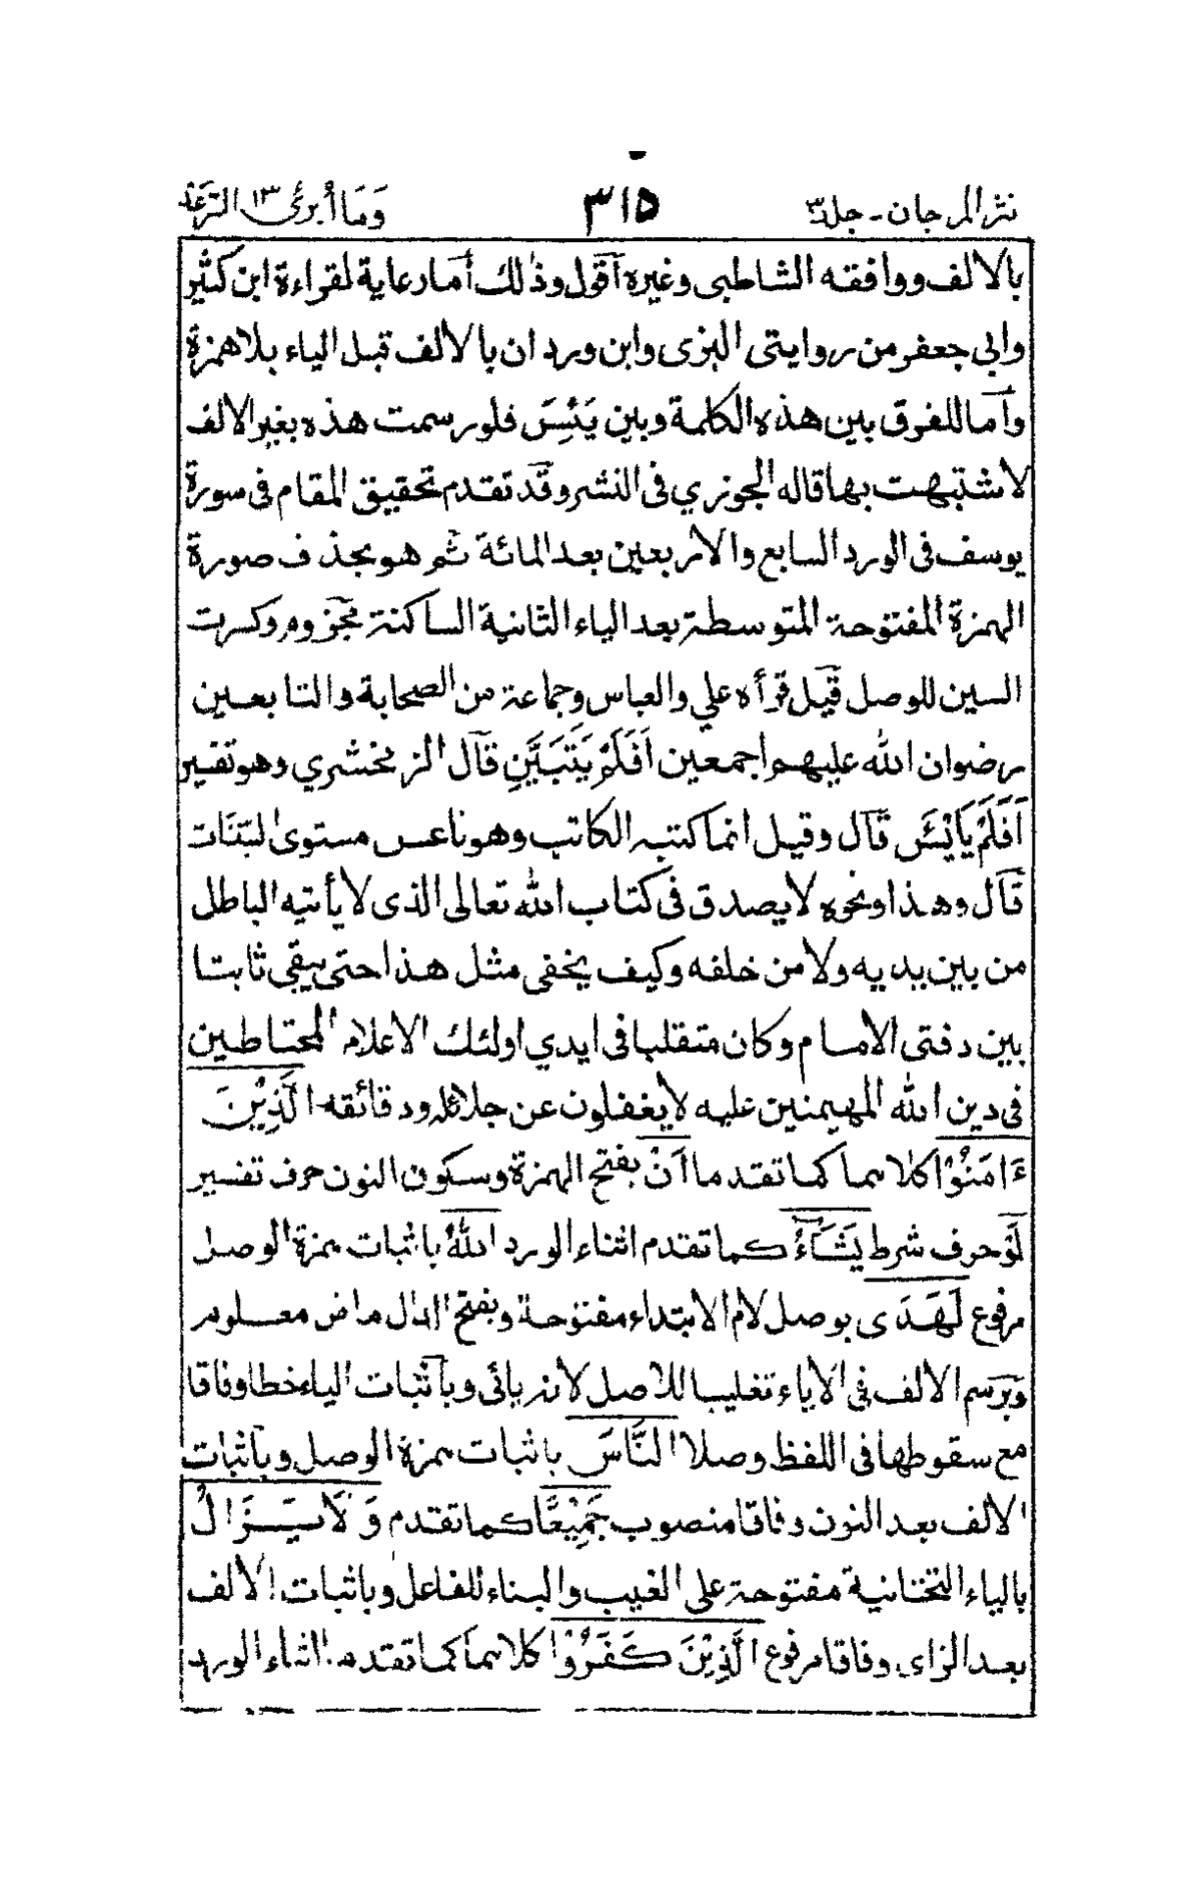 نثر المرجان - جلد ٣ ٣١٥ وَمَا أُبرئ ١٣ الرَّعْد
بالالف ووافقه الشاطبى وغيره اَقول وذٰلك أما رعاية لقراءة ابن كثير
وابي جعفر من روايتى البزى وابن وردان بالالف قبل الياء بلا همزة
وأما للفرق بين هذه الكلمة وبين يَئِسَ فلو رسمت هذه بغير الالف
لاشتبهت بها قاله الجوزري فى النشر وقد تقدم تحقيق المقام فى سورة
يوسف فى الورد السابع والاربعين بعد المائة ثم هو بحذف صورة
الهمزة المفتوحة المتوسطة بعد الياء الثانية الساكنة مجزوم وكسرت
السين للوصل قيل قرأه علي والعباس وجماعة من الصحابة والتابعين
رضوان الله عليهم اجمعين اَفَلَمْ يَتَبَيَّنِ قال الزمخشري وهو تفسير
اَفَلَمْ يَايْئَسِ قال وقيل انما كتبه الكاتب وهو ناعس مستوىٰ لسّنَات
قال وهذا ونحوه لا يصدق فى كتاب الله تعالى الذى لا يأتيه الباطل
من بين يديه ولا من خلفه وكيف يخفى مثل هذا حتى يبقى ثابتا
بين دفتى الامام وكان متقلبا فى ايدي اولئك الاعلام المحتاطين
فى دين الله المهيمنين عليه لا يغفلون عن جلائله ودقائقه الَّذِيْنَ
ءَامَنُوْا كلاهما كما تقدما اَنْ بفتح الهمزة وسكون النون حرف تفسير
لَوْ حرف شرط يَشَآءُ كما تقدم اثناء الورد اللهُ باثبات همزة الوصل
مرفوع لَهَدَى بوصل لام الابتداء مفتوحة وبفتح الدال ماض معلوم
وبرسم الالف فى الاياء تغليبا للاصل لانه يائى وباثبات الياء خطا وفاقا
مع سقوطها فى اللفظ وصلا النَّاسَ باثبات همزة الوصل وباثبات
الالف بعد النون وفاقا منصوب جَمِيْعًا كما تقدم وَلَا يَزَالُ
بالياء التحتانية مفتوحة على الغيب والبناء للفاعل وباثبات الالف
بعد الزاى وفاقا مرفوع الَّذِيْنَ كَفَرُوْا كلاهما كما تقدما اثناء الورد